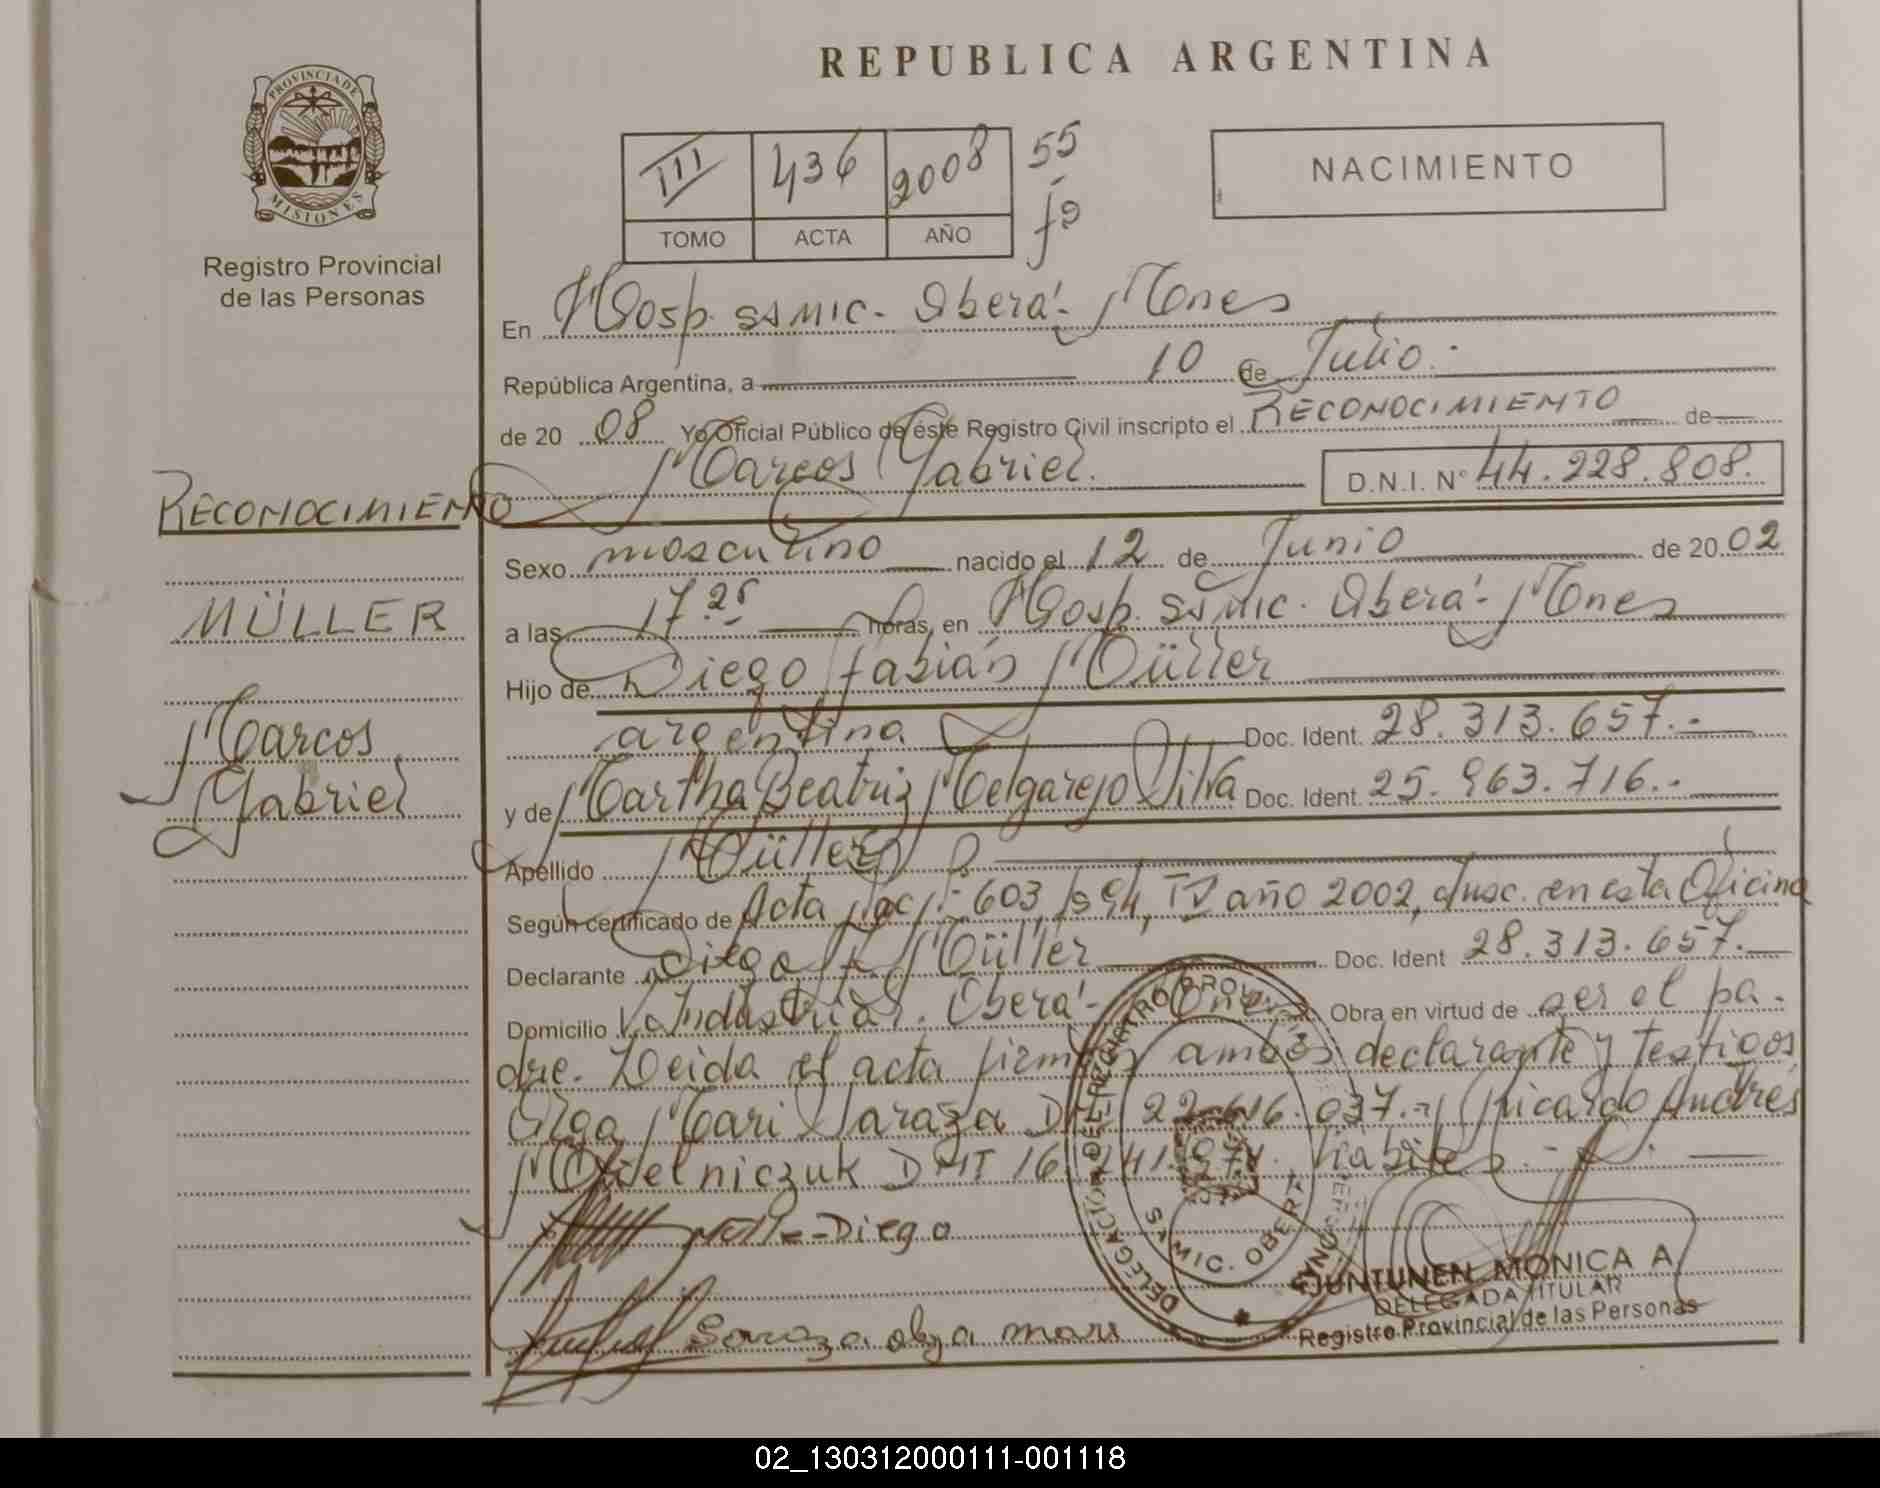 REPUBLICA ARGENTINA
PROVINCIA DE
MISIONES
Registro Provincial
de las Personas
III 436 2008 55
TOMO ACTA AÑO fº
NACIMIENTO
En Hosp. SSMIC. Oberá - Mnes
República Argentina, a 10 de Julio.
de 2008 Yo Oficial Público de éste Registro Civil inscripto el RECONOCIMIENTO de
Marcos Gabriel. D.N.I. Nº 44.228.808.
RECONOCIMIENTO
Sexo masculino nacido el 12 de Junio de 2002
MÜLLER
a las 17.25 horas, en Hosp. SSMIC. Oberá - Mnes
Hijo de Diego Fabián Müller
argentina Doc. Ident. 28.313.657.-
Marcos
Gabriel
y de Martha Beatriz Melgarejo Silva Doc. Ident. 25.963.716.-
Apellido Müller
Según certificado de Acta Nac. 603, fº 94, año 2002, Insc. en esta Oficina
Declarante Diego F. Müller Doc. Ident 28.313.657.
Domicilio Vª Industrial. Oberá - Mnes Obra en virtud de ser el pa-
dre. Leida el acta firman ambos declarante y testigos
Olga Mari Saraza 22.616.037.- y Ricardo Andrés
DNI 16. hábiles.-
Diego
Saraza olga mari
DELEGACION DEL REGISTRO PROVINCIAL
SSMIC. OBERA
JUNTUNEN MONICA A
DELEGADA TITULAR
Registro Provincial de las Personas
02_130312000111-001118